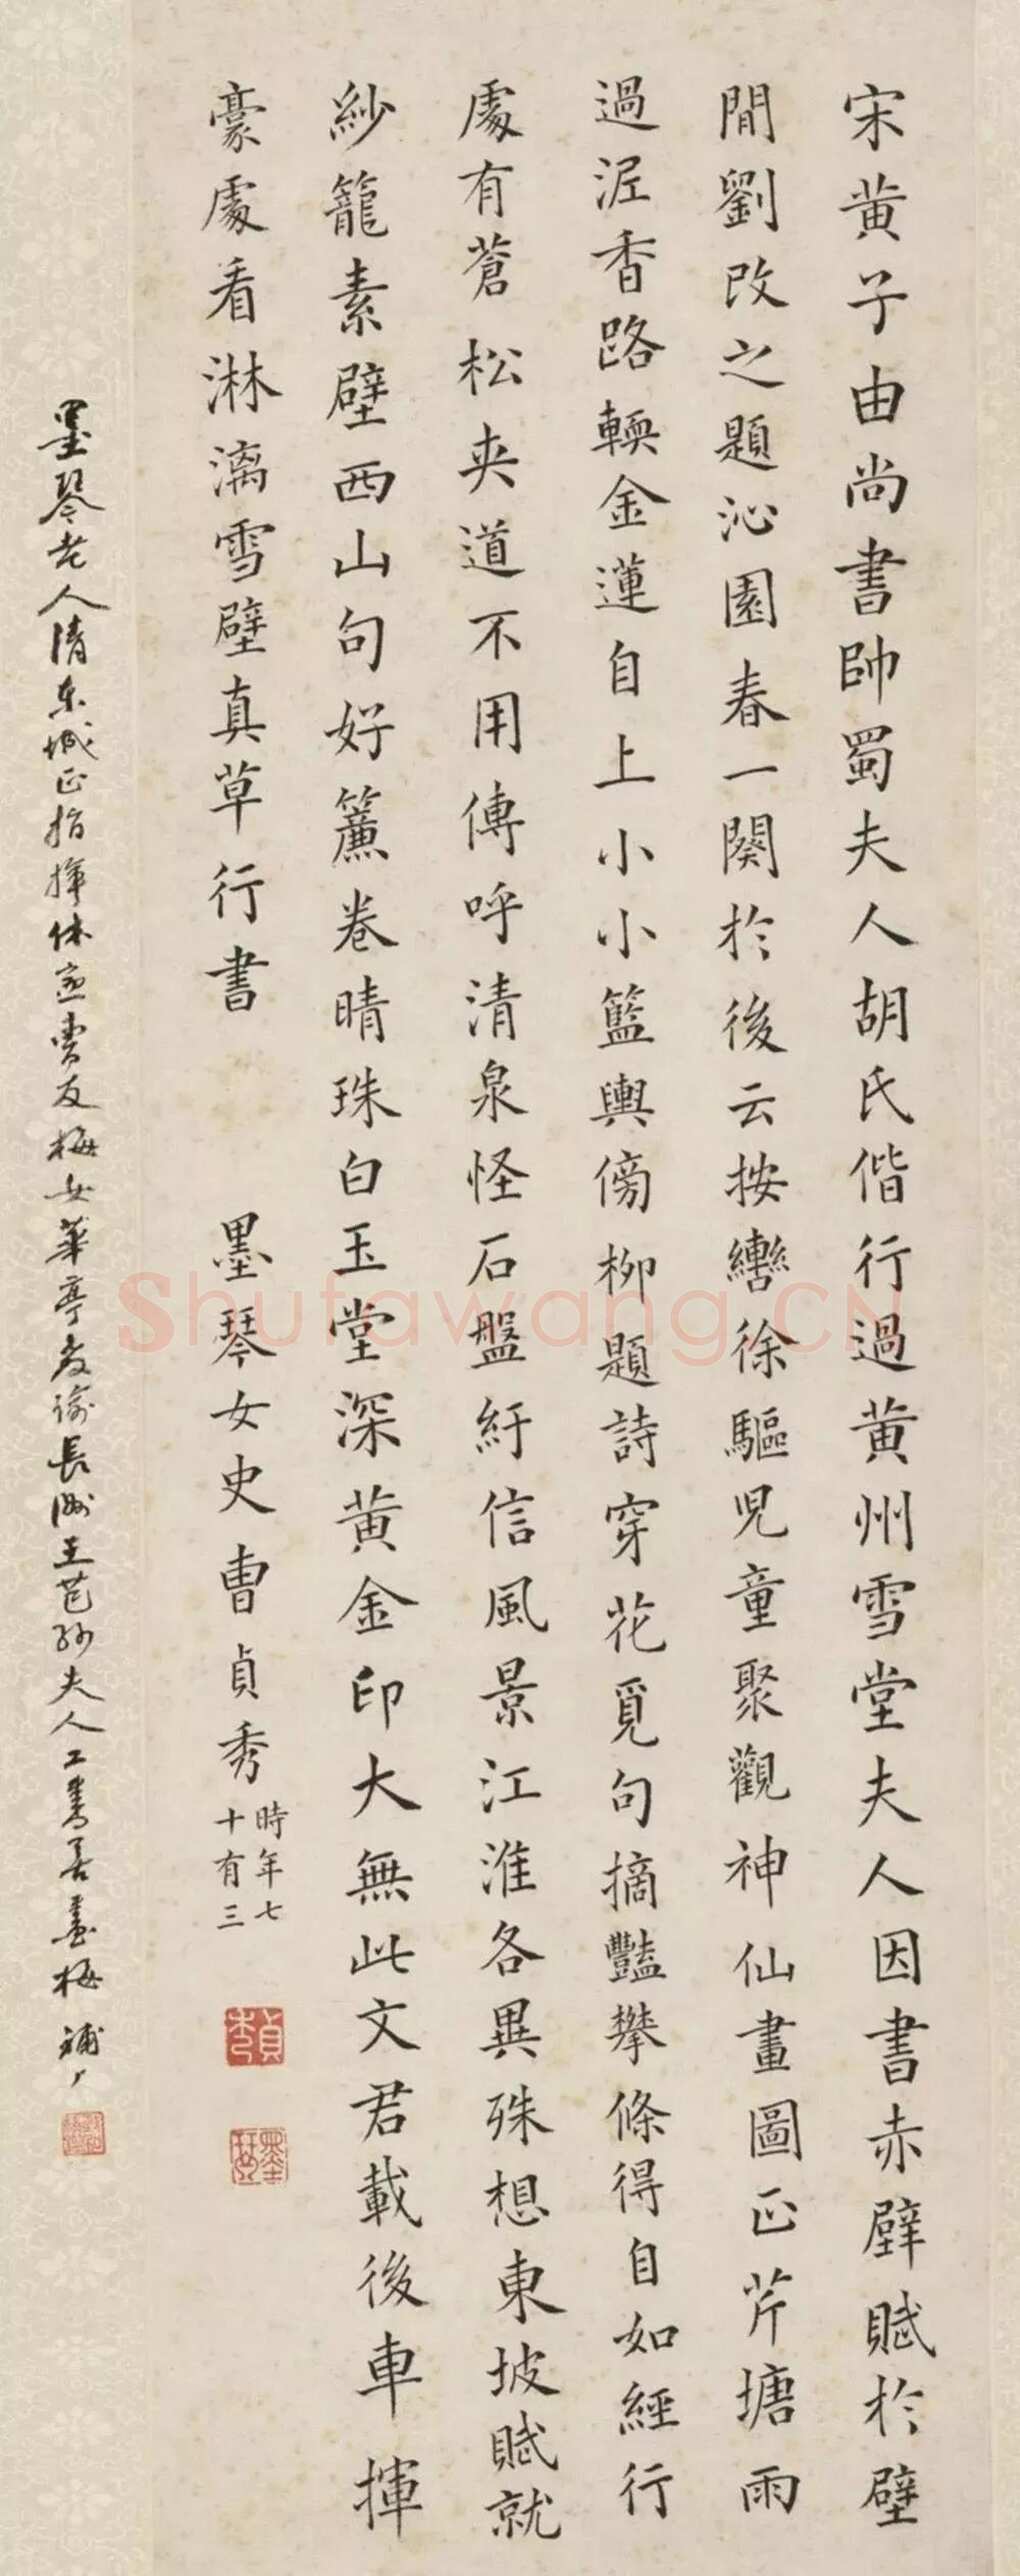 宋黄子由尚書帥蜀夫人胡氏偕行過黄州雪堂夫人因書赤壁賦於壁
間劉改之題沁園春一闋於後云按轡徐驅兒童聚觀神仙畫圖正芹塘雨
過泥香路輭金蓮自上小小籃輿傍柳題詩穿花覓句摘豔攀條得自如經行
處有蒼松夾道不用傳呼清泉怪石盤紆信風景江淮各異殊想東坡賦就
紗籠素壁西山句好簾卷晴珠白玉堂深黄金印大無此文君載後車揮
豪處看淋漓雪壁真草行書
墨琴女史曹貞秀
時年七
十有三
墨琴老人清東城正指揮休寧曹友梅女華亭教諭長洲王芑孫夫人工書善畫梅
貞秀
墨琴
Shufawang.CN